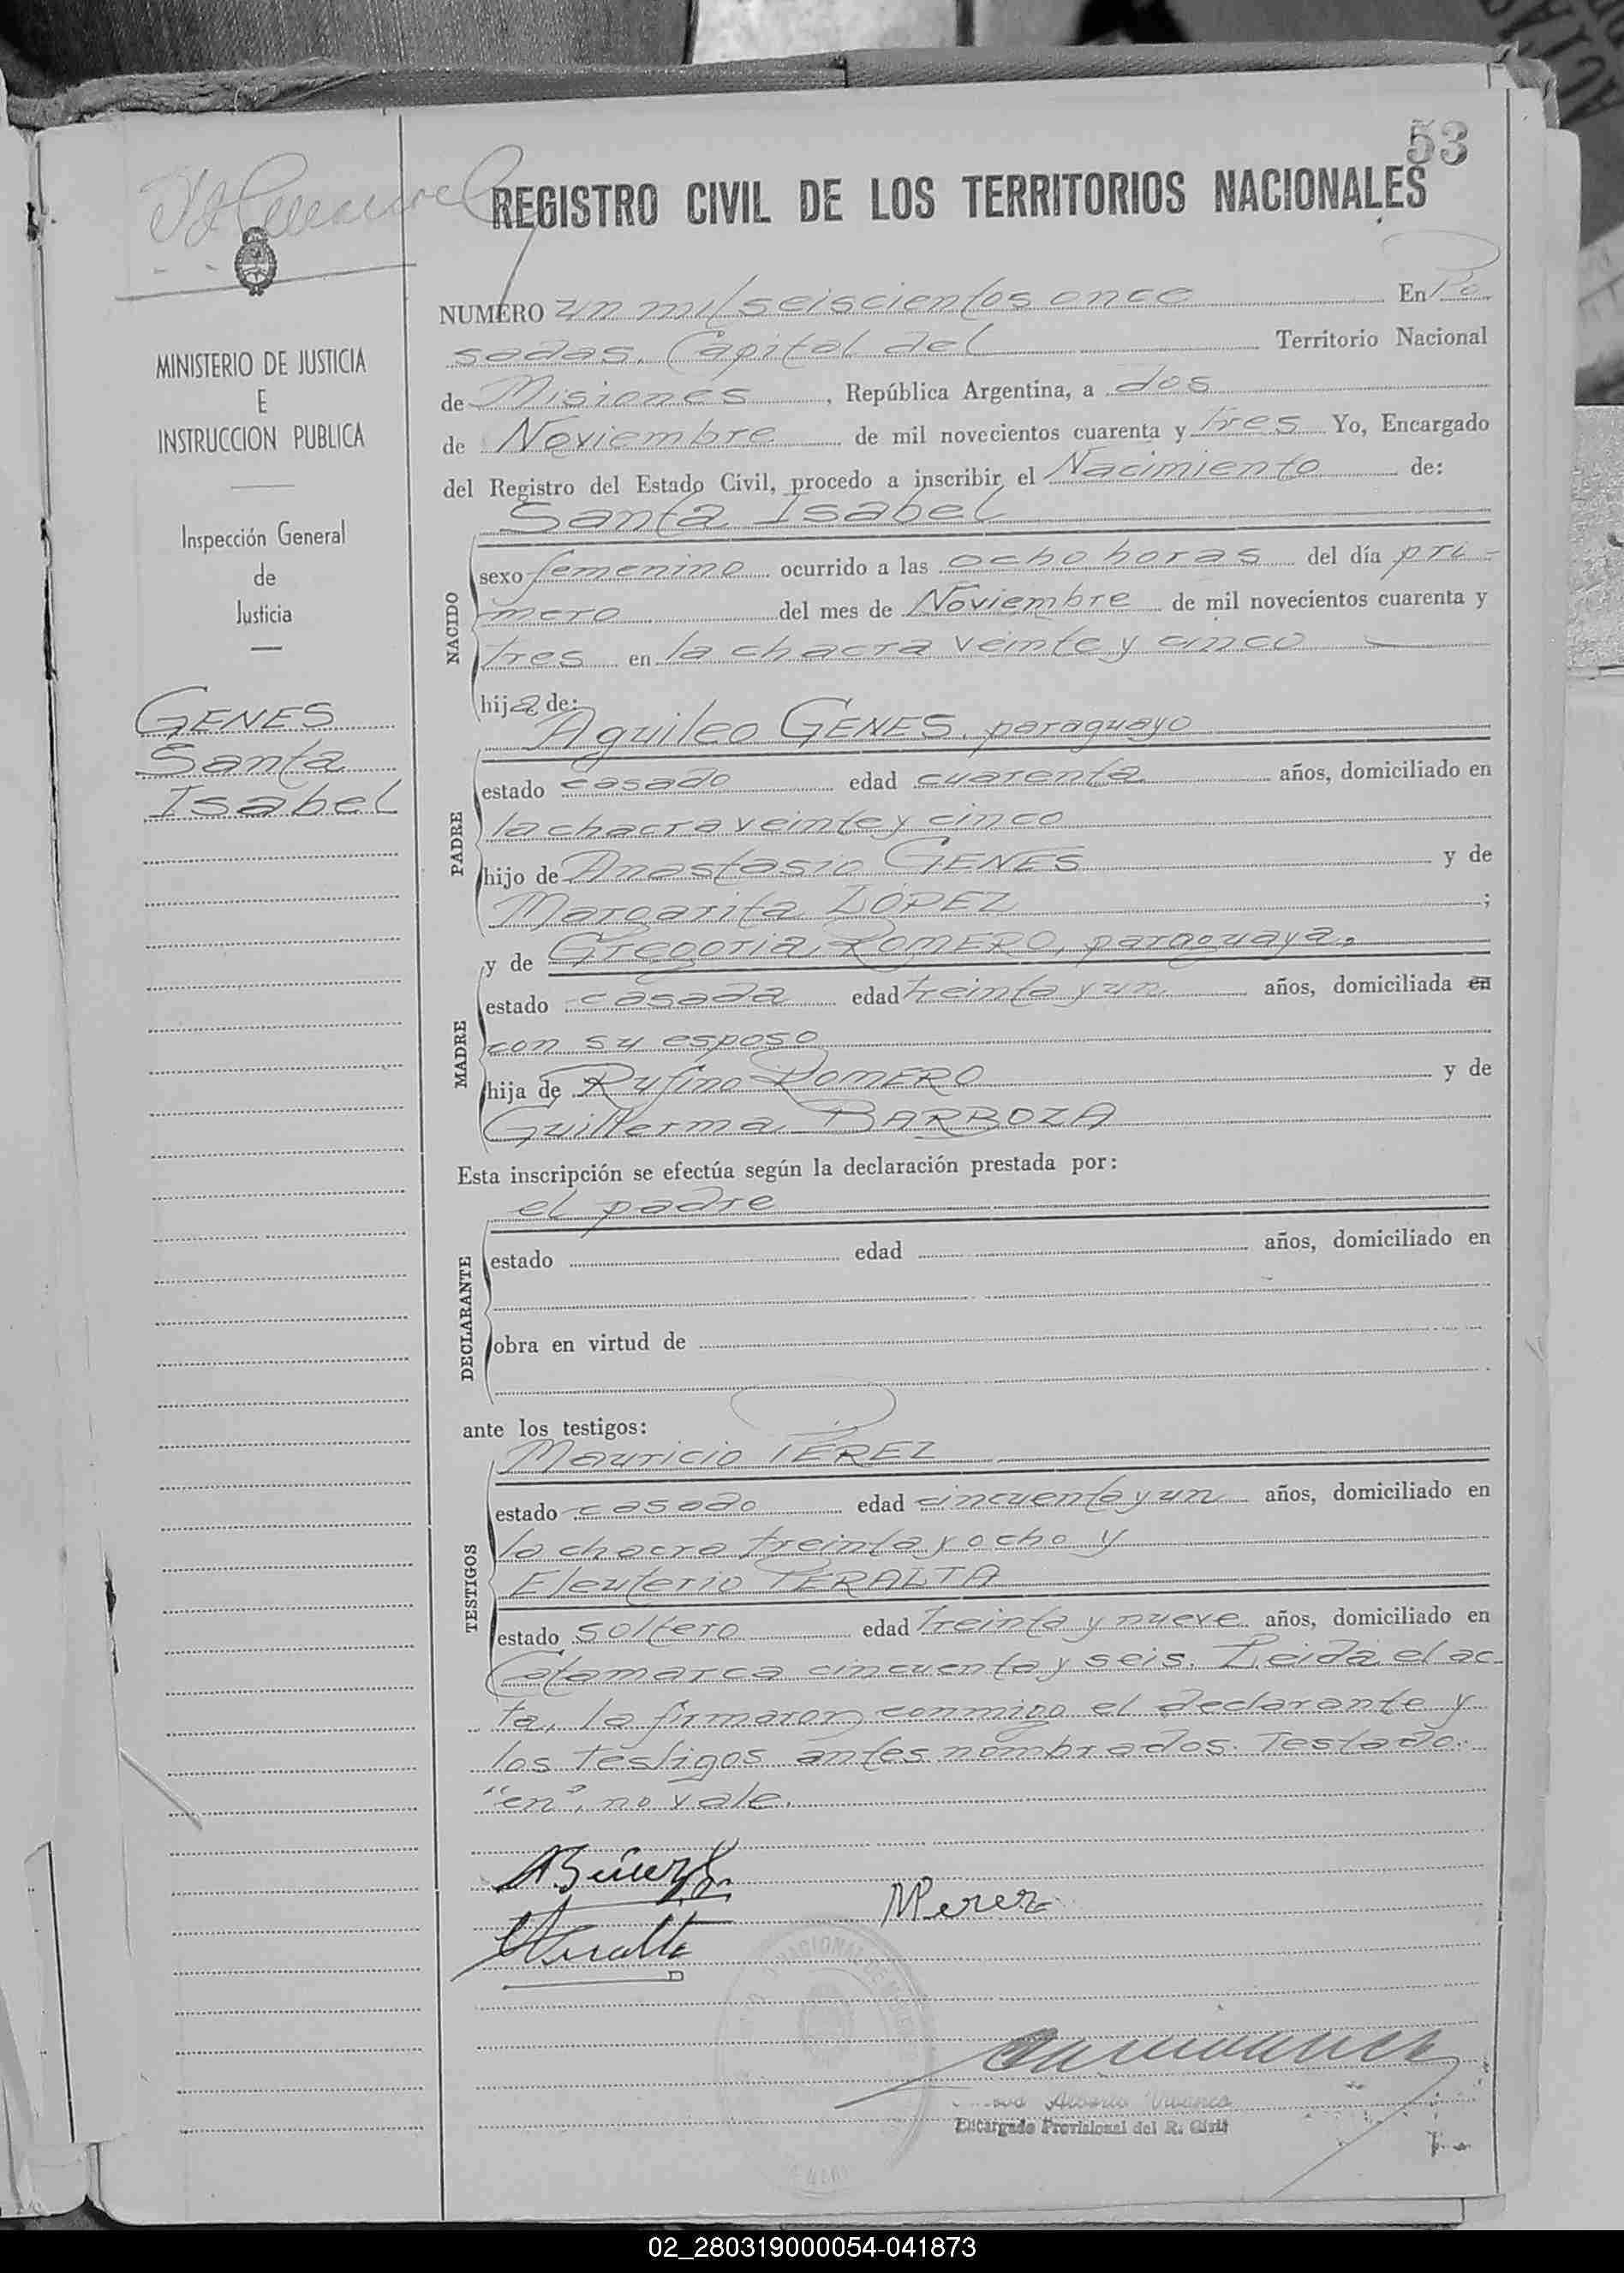 53
REGISTRO CIVIL DE LOS TERRITORIOS NACIONALES
MINISTERIO DE JUSTICIA
E
INSTRUCCION PUBLICA
Inspección General
de
Justicia
GENES
Santa
Isabel
NUMERO un mil seiscientos once En Po
sadas. Capital del Territorio Nacional
de Misiones, República Argentina, a dos
de Noviembre de mil novecientos cuarenta y tres Yo, Encargado
del Registro del Estado Civil, procedo a inscribir el Nacimiento de:
Santa Isabel
NACIDO
sexo femenino ocurrido a las ocho horas del día pri-
mero del mes de Noviembre de mil novecientos cuarenta y
tres en la chacra veinte y cinco
hija de:
Aguileo GENES, paraguayo
PADRE
estado casado edad cuarenta años, domiciliado en
la chacra veinte y cinco
hijo de Anastasio GENES y de
Margarita LÓPEZ ;
y de Gregoria ROMERO, paraguaya.
MADRE
estado casada edad treinta y un años, domiciliada en
con su esposo
hija de Rufino ROMERO y de
Guillerma BARBOZA
Esta inscripción se efectúa según la declaración prestada por:
el padre
DECLARANTE
estado edad años, domiciliado en
obra en virtud de
ante los testigos:
Mauricio PÉREZ
TESTIGOS
estado casado edad cincuenta y un años, domiciliado en
la chacra treinta y ocho y
Eleuterio PERALTA
estado soltero edad treinta y nueve años, domiciliado en
Catamarca cincuenta y seis. Leída el ac-
ta, la firmaron conmigo el declarante y
los testigos antes nombrados. Testado:
"en", no vale.
MPerez
Alberto
Encargado Provisional del R. Civil
02_280319000054-041873